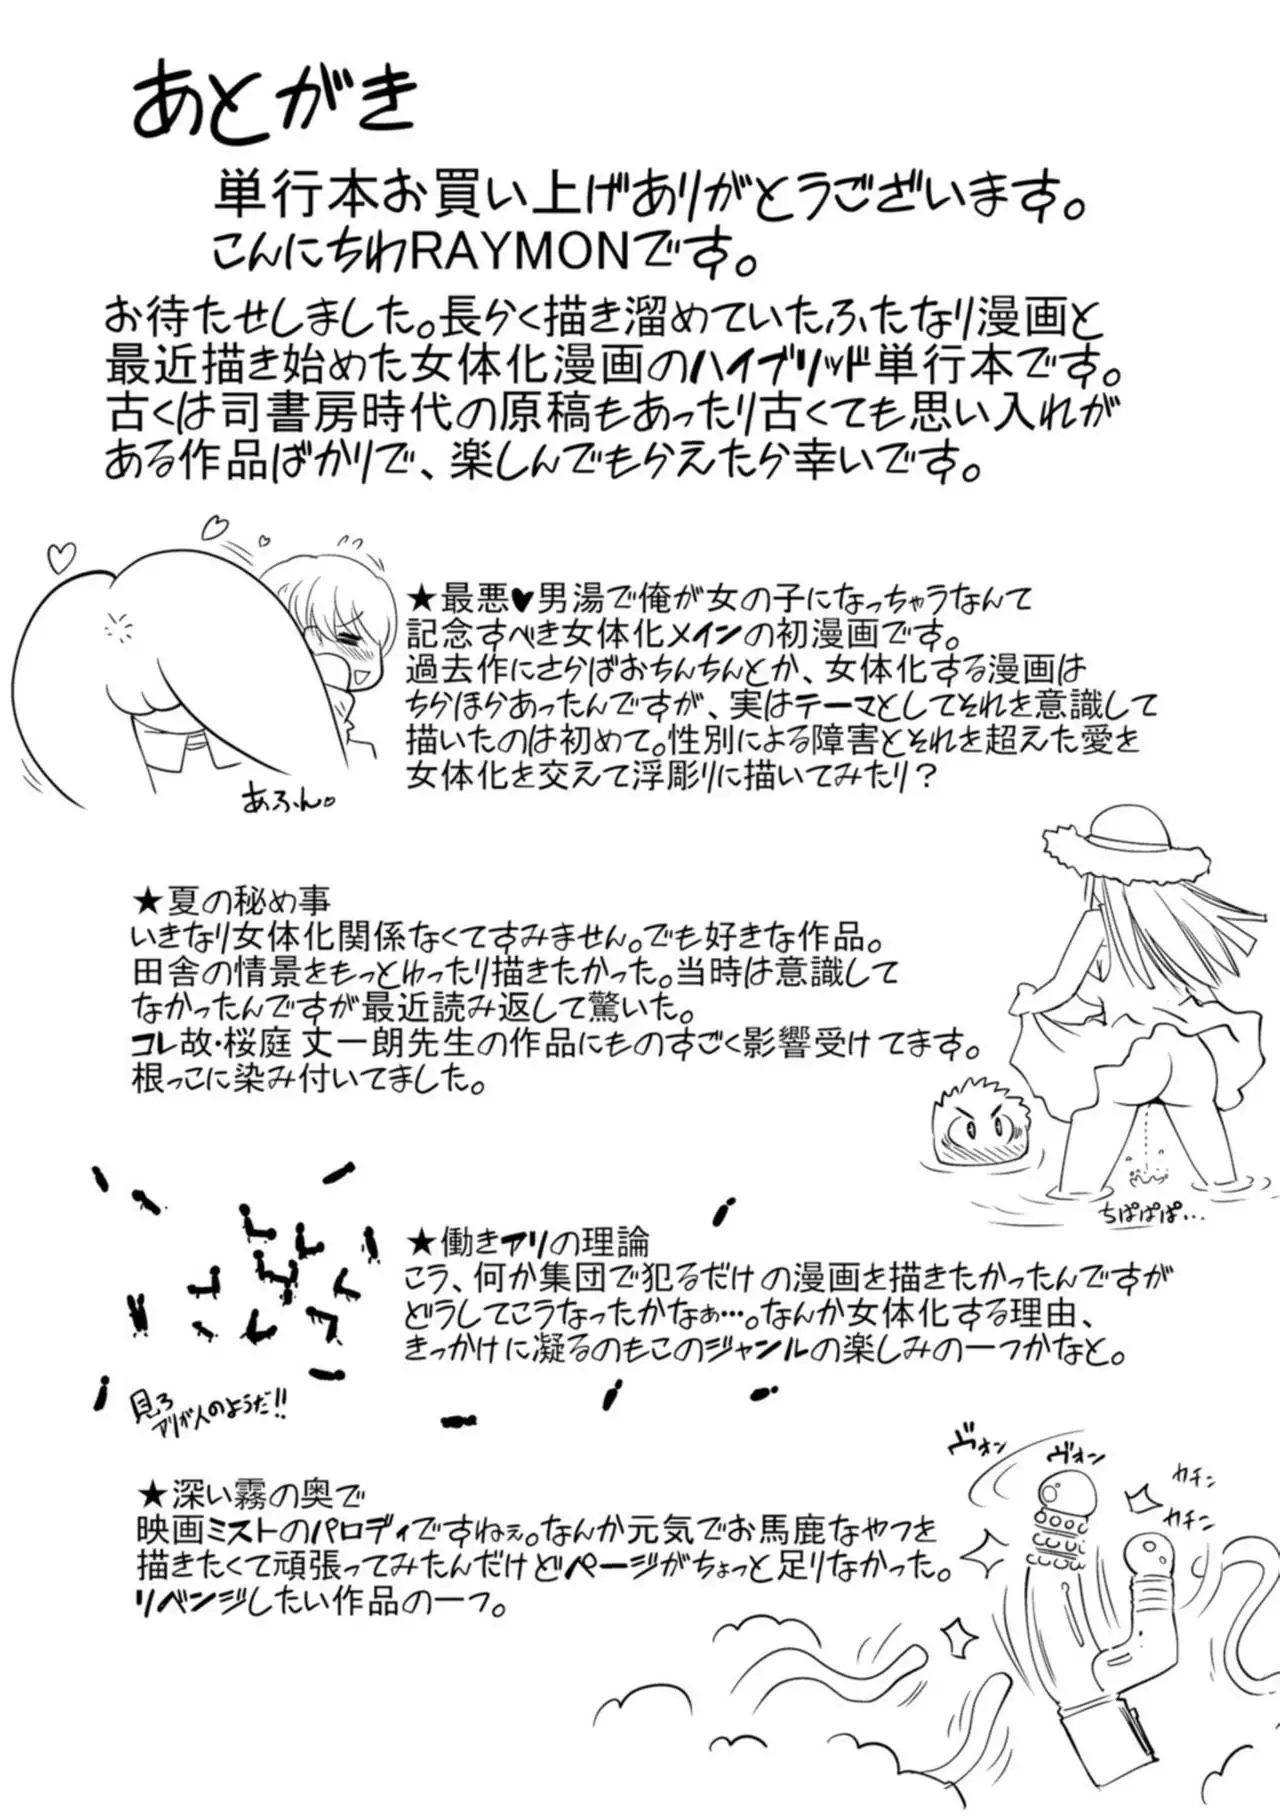 あとがき
単行本お買い上げありがとうございます。
こんにちわRAYMONです。
お待たせしました。長らく描き溜めていたふたなり漫画と
最近描き始めた女体化漫画のハイブリッド単行本です。
古くは司書房時代の原稿もあったり古くても思い入れが
ある作品ばかりで、楽しんでもらえたら幸いです。
★最悪♥男湯で俺が女の子になっちゃうなんて
記念すべき女体化メインの初漫画です。
過去作にさらばおちんちんとか、女体化する漫画は
ちらほらあったんですが、実はテーマとしてそれを意識して
描いたのは初めて。性別による障害とそれを超えた愛を
女体化を交えて浮彫りに描いてみたり?
あふん♡
★夏の秘め事
いきなり女体化関係なくてすみません。でも好きな作品。
田舎の情景をもっとゆったり描きたかった。当時は意識して
なかったんですが最近読み返して驚いた。
コレ故・桜庭 丈一朗先生の作品にものすごく影響受けてます。
根っこに染み付いてました。
ちぱぱぱ…
★働きアリの理論
こう、何か集団で犯るだけの漫画を描きたかったんですが
どうしてこうなったかなぁ…。なんか女体化する理由、
きっかけに凝るのもこのジャンルの楽しみの一つかなと。
見ろ
アリが人のようだ!!
★深い霧の奥で
映画ミストのパロディですねぇ。なんか元気でお馬鹿なやつを
描きたくて頑張ってみたんだけどページがちょっと足りなかった。
リベンジしたい作品の一つ。
ヴォン
ヴォン
カチン
カチン